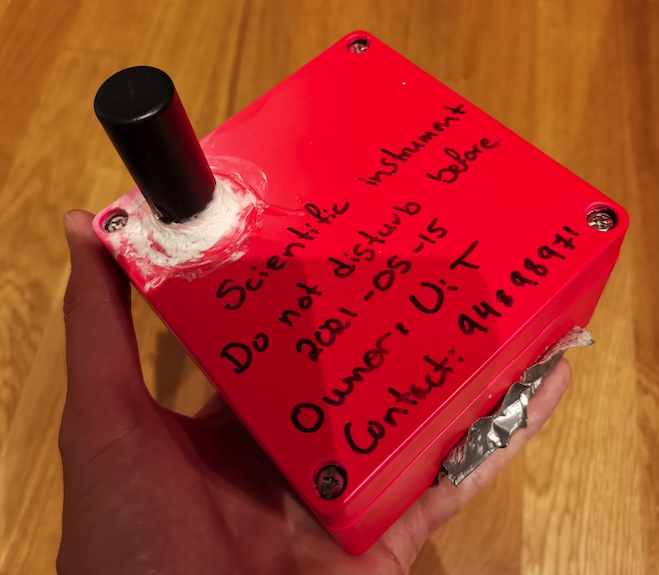 Scientific instrument
Do not disturb before
2021-05-15
Owner: UiT
Contact: 94898971